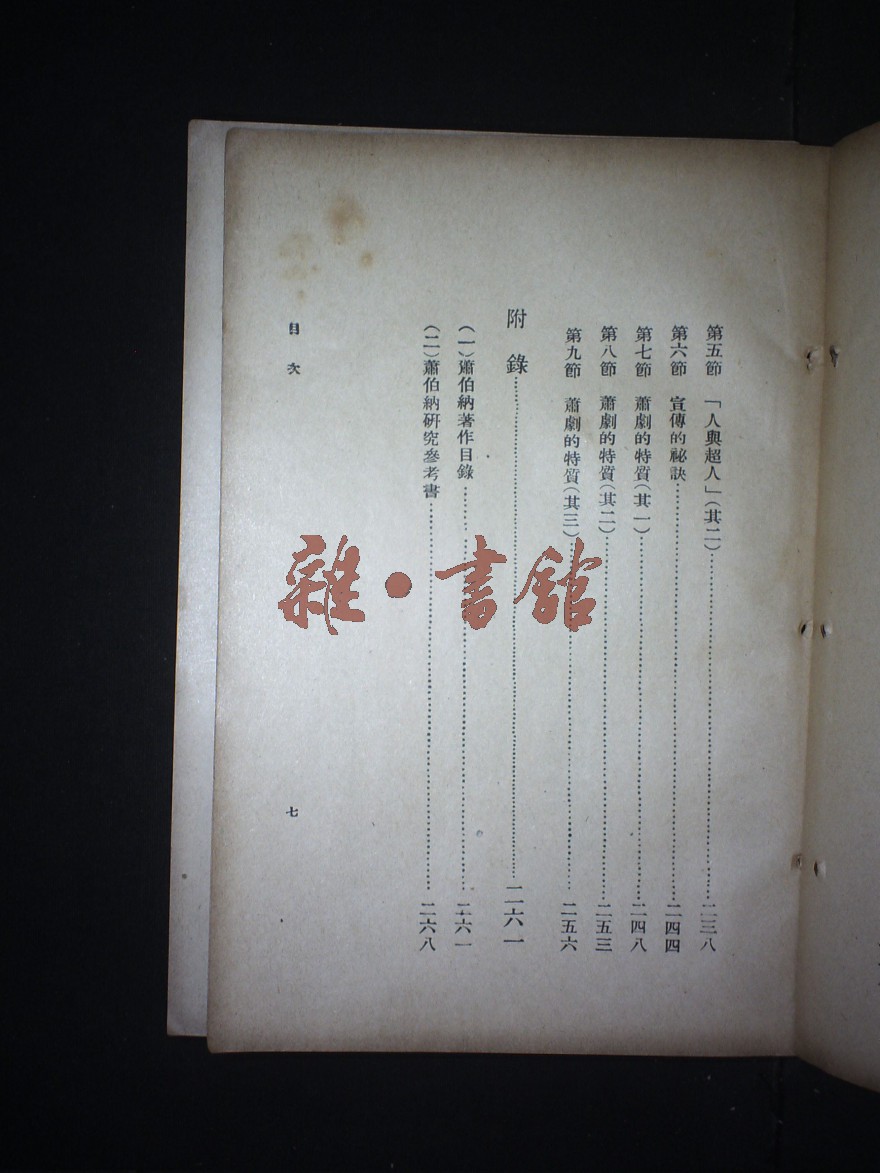 第五節　「人與超人」（其二）……二三八
第六節　宣傳的祕訣……二四四
第七節　蕭劇的特質（其一）……二四八
第八節　蕭劇的特質（其二）……二五三
第九節　蕭劇的特質（其三）……二五六
附　錄……二六一
（一）蕭伯納著作目錄……二六一
（二）蕭伯納研究參考書……二六八
目　次　七
雜・書館